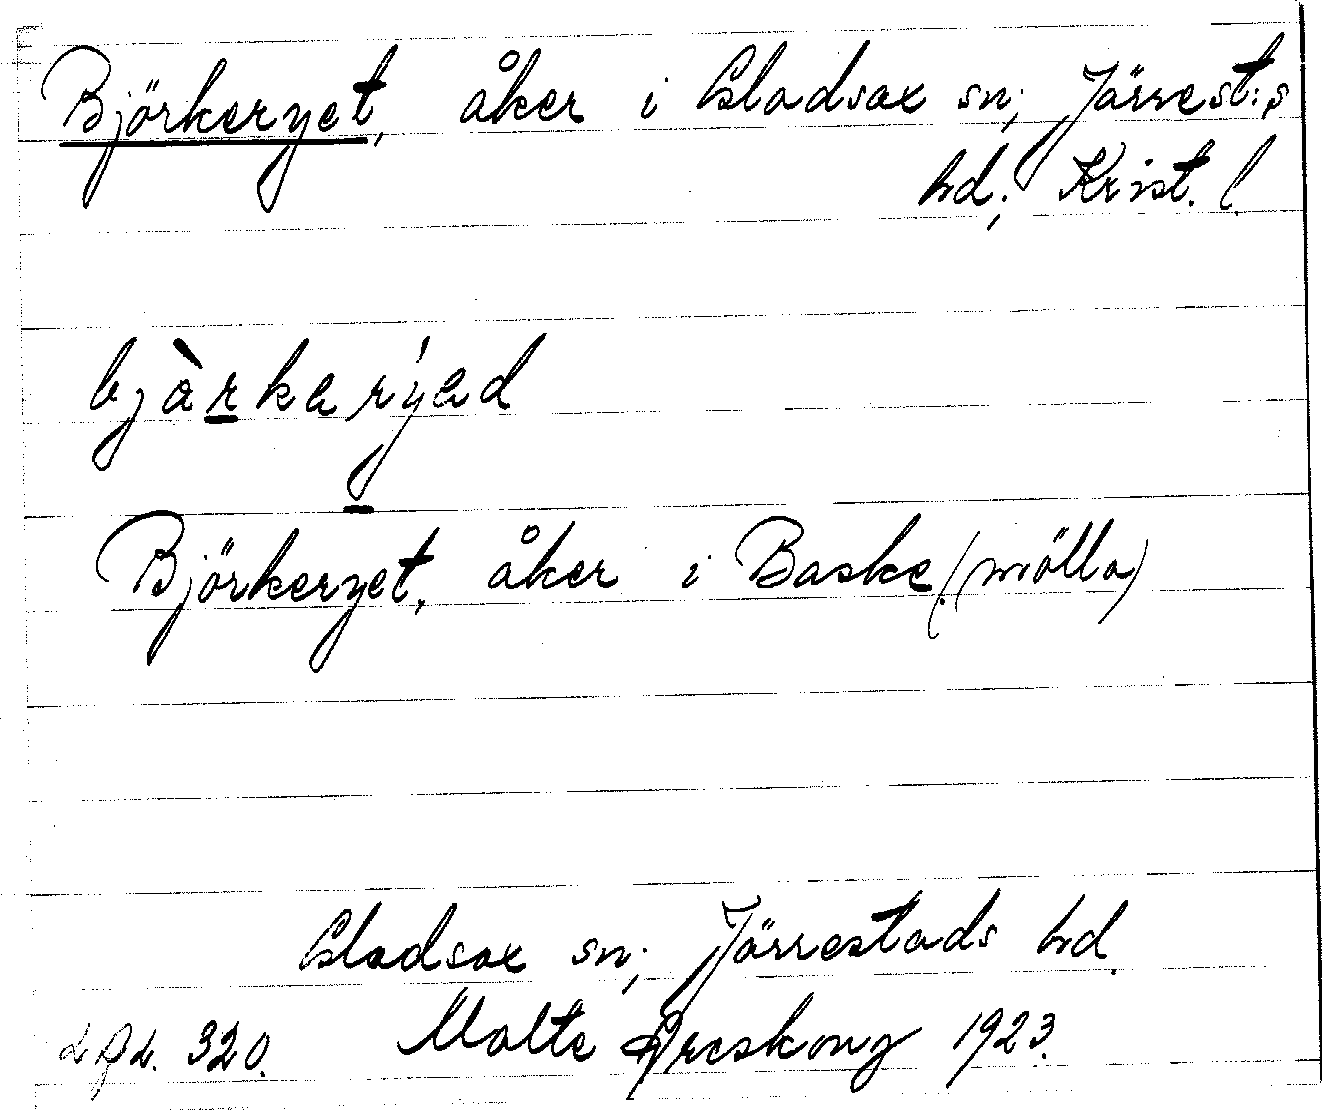 Björkeryet, åker i Gladsax sn; Järrest:s
hd; Krist. l.
bjàrkarýed
Björkeryet, åker i Baske (mölla)
Gladsax sn; Järrestads hd.
320. Malte Areskoug 1923.